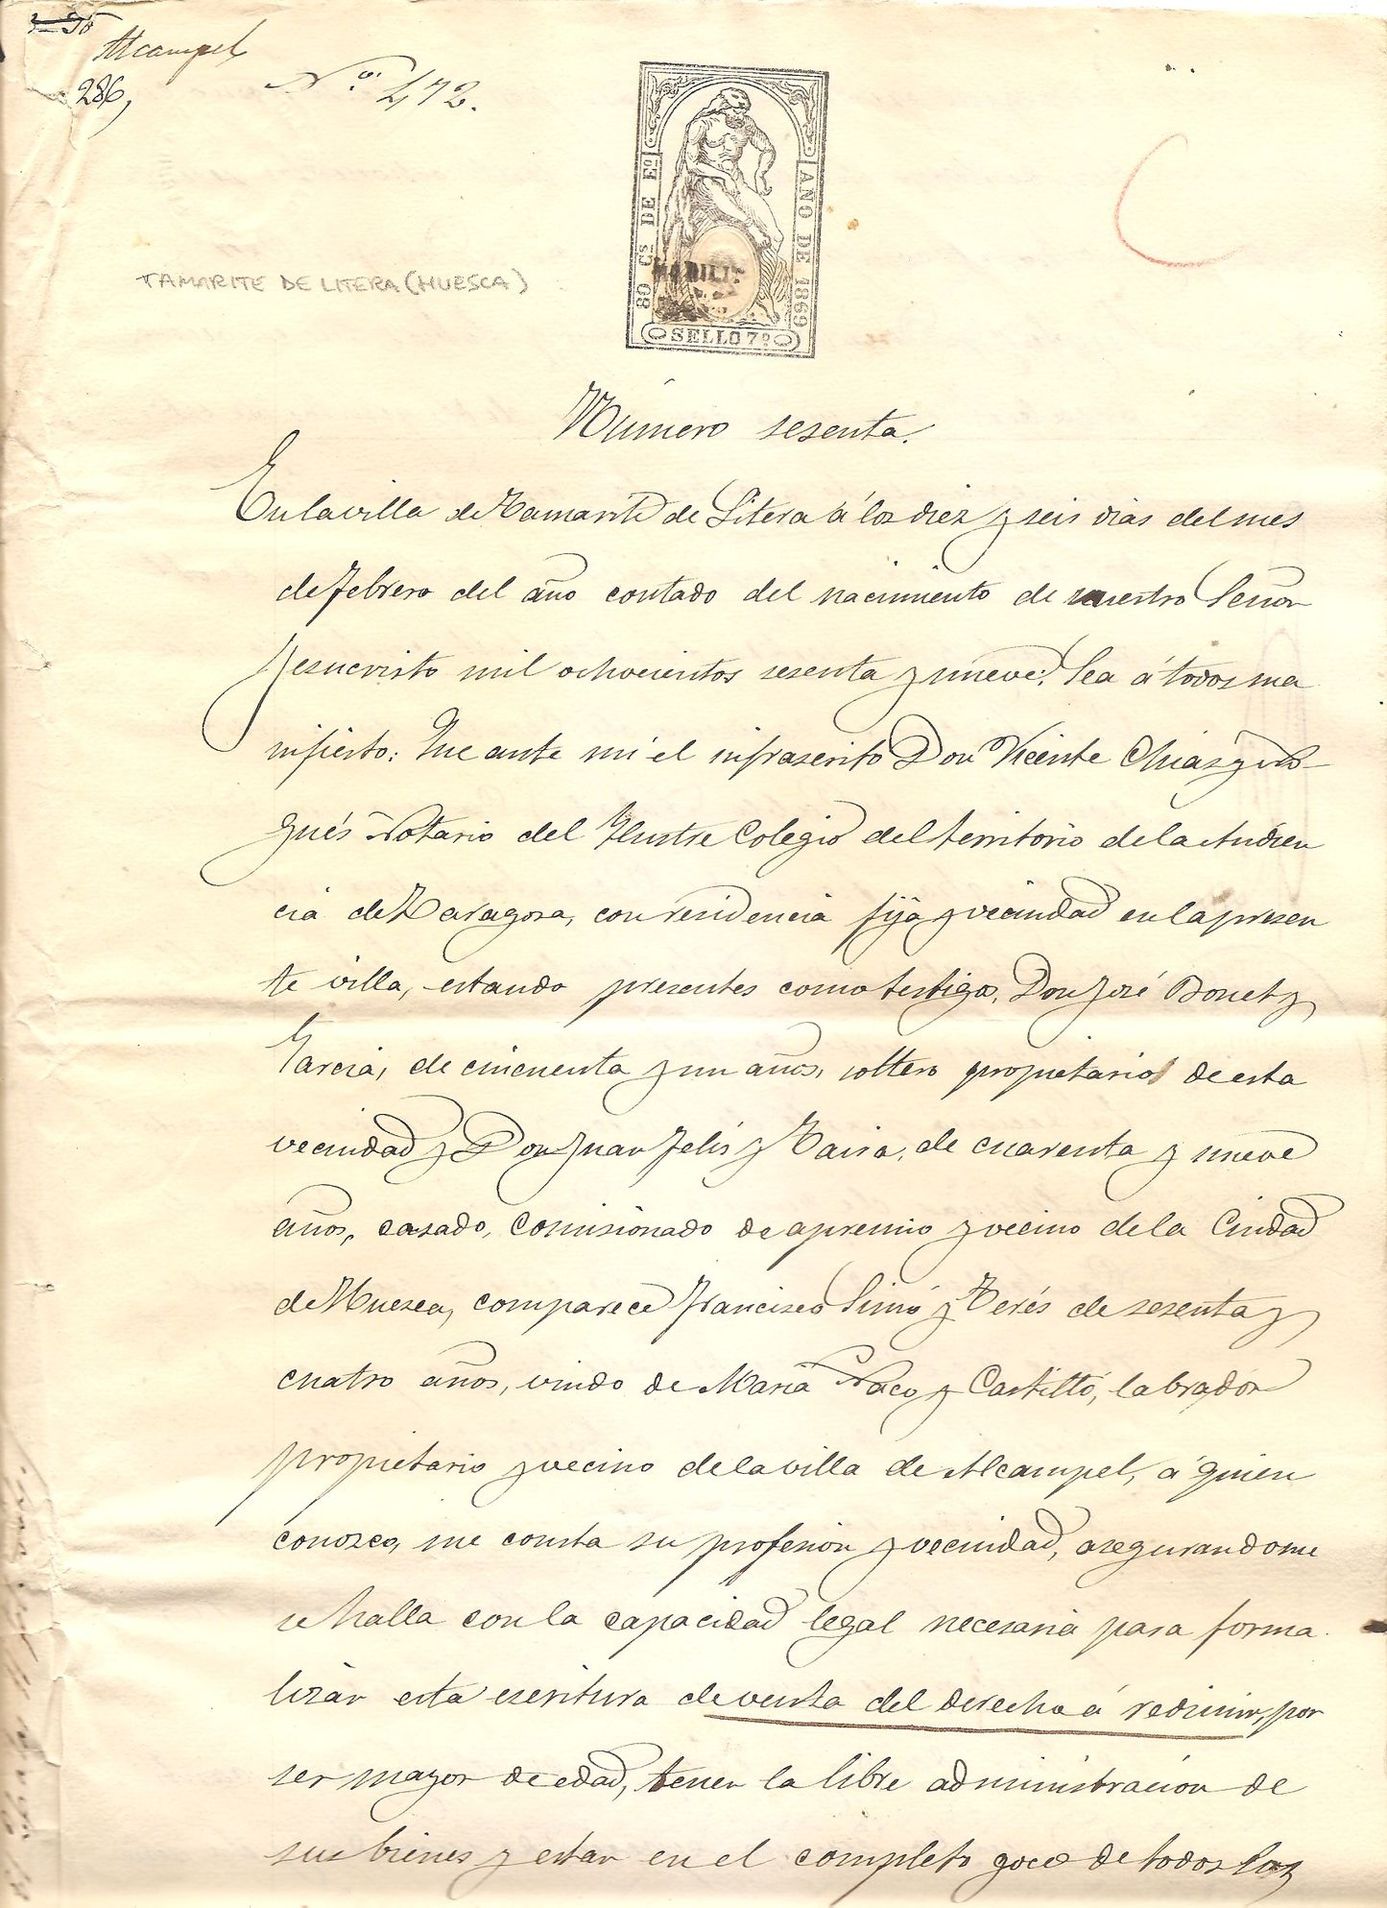 Alcampel
286,
Nº 472.
80 Cs DE Eº
AÑO DE 1869
HABILI
SELLO 7º
TAMARITE DE LITERA (HUESCA)
Número sesenta.
En la villa de Tamarite de Litera á los diez y seis dias del mes
de Febrero del año contado del nacimiento de nuestro Señor
Jesucristo mil ochocientos sesenta y nueve: Sea á todos ma
nifiesto: Que ante mi el infrascrito Don Vicente Chias y
gués Notario del Ilustre Colegio del territorio de la Audien
cia de Zaragoza, con residencia fija y vecindad en la presen
te villa, estando presentes como testigos, Don José Bonet y
Garcia, de cincuenta y un años, soltero propietario de esta
vecindad y Don Juan Felis y Zaira, de cuarenta y nueve
años, casado, Comisionado de apremio y vecino de la Ciudad
de Huesca, comparece Francisco Simó y Terés de sesenta y
cuatro años, viudo de Maria Naco y Castilló, labrador
propietario y vecino de la villa de Alcampel, á quien
conozco, me consta su profesion y vecindad, asegurandome
se halla con la capacidad legal necesaria para forma
lizar esta escritura de venta del derecho á redimir, por
ser mayor de edad, tener la libre administracion de
sus bienes y estar en el completo goce de todos los